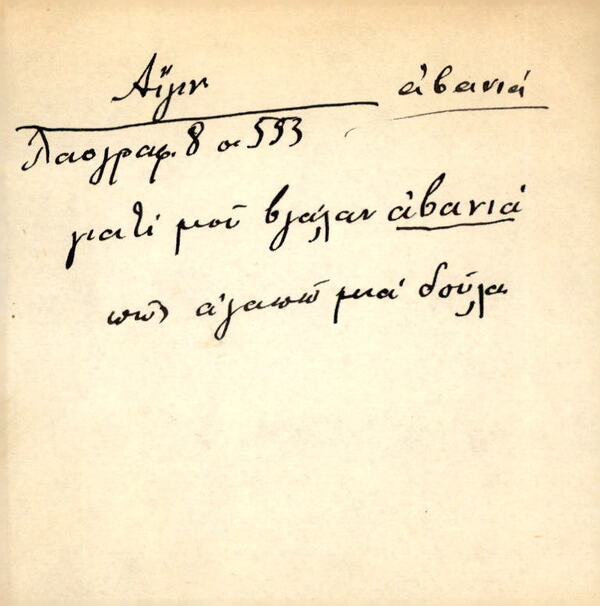 Αἴγιν ἀβανιά
Λαογραφ. 8 σ 593
γιατί μοῦ βγάλαν ἀβανιά
πῶς ἀγαπῶ μιά δούλα